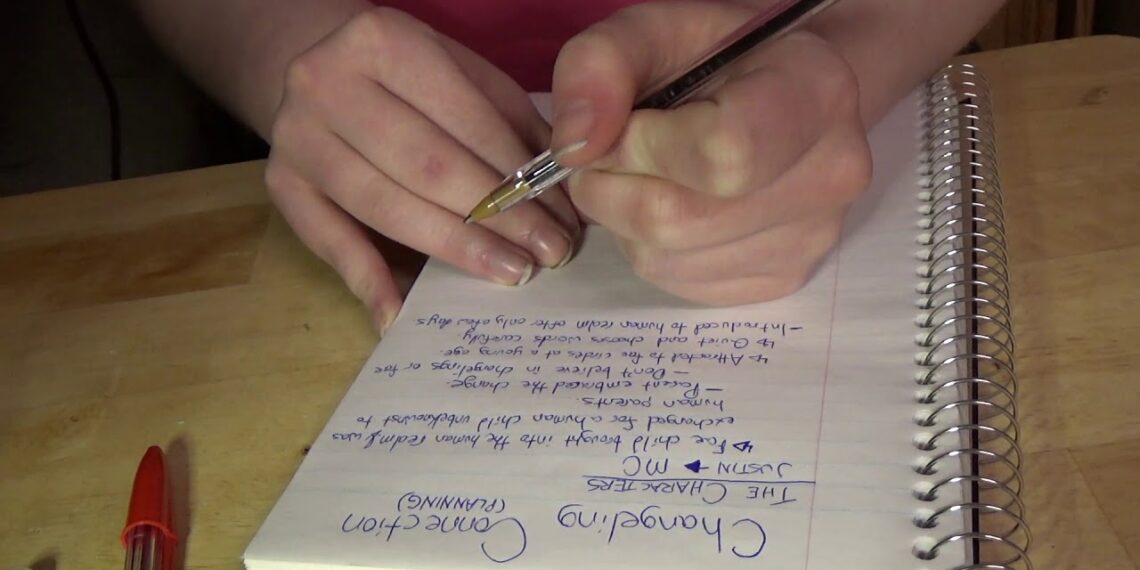 Changeling Connection
(PLANNING)
THE CHARACTERS
JUSTIN → MC
↳ Fae child brought into the human realm/was
exchanged for a human child unbeknownst to
human parents.
- Parent embraced the change.
- Don't believe in changelings or fae
↳ Attracted to fae circles at a young age.
↳ Quiet and chooses words carefully.
- Introduced to human realm after only a few days